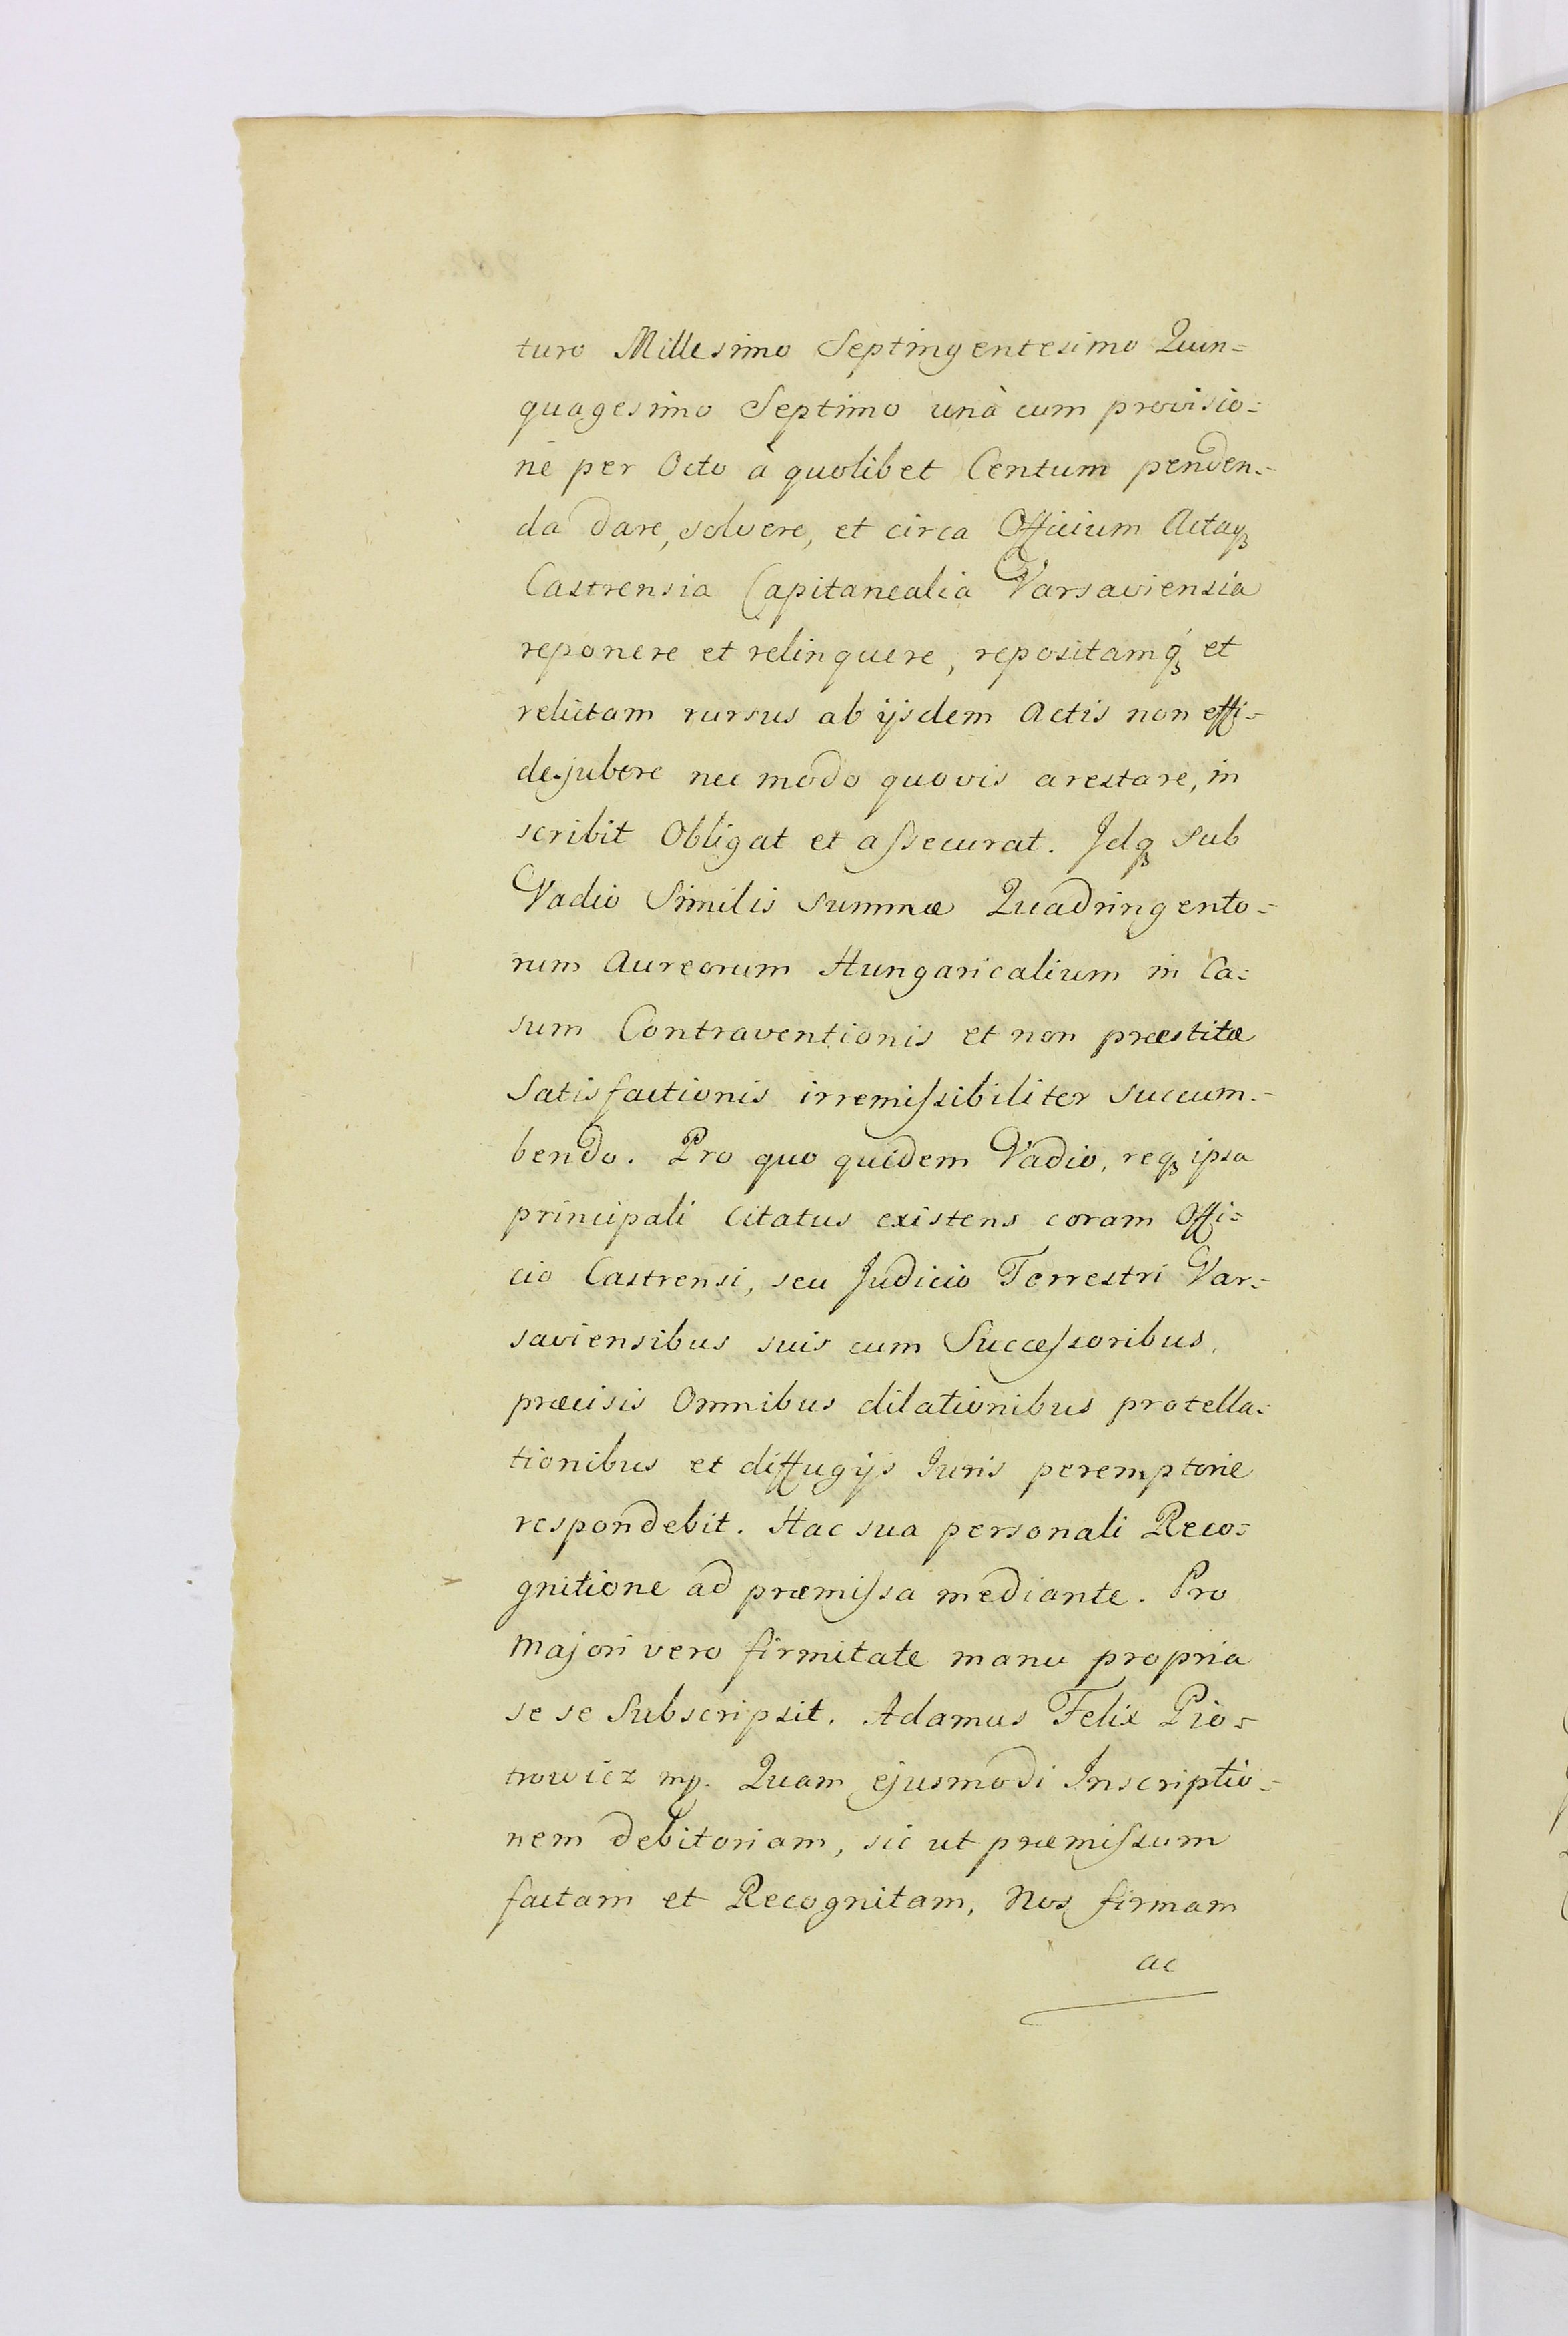 turo Millesimo Septingentesimo Quin=
quagesimo Septimo unà cum provisio=
ne per Octo à quolibet Centum penden=
da dare, solvere, et circa Officium Actaqꝫ
Castrensia Capitanealia Varsaviensia
reponere et relinquere, repositamqꝫ et
relictam rursus ab ijsdem Actis non effi=
dejubere nec modo quovis arestare, in
scribit Obligat et aſsecurat. Idqꝫ sub
Vadio Similis summæ Quadringento=
rum Aureorum Hungaricalium in Ca=
sum Contraventionis et non præstitæ
Satisfactionis irremiſsibiliter succum=
bendo. Pro quo quidem Vadio, reqꝫ ipsa
principali Citatus existens coram Offi=
cio Castrensi, seu Judicio Terrestri Var=
saviensibus suis cum Succeſsoribus,
præcisis Omnibus dilationibus protella=
tionibus et diffugijs Iuris peremptorie
respondebit. Hac sua personali Reco=
gnitione ad præmiſsa mediante. Pro
majori vero firmitate manu propria
se se Subscripsit. Adamus Felix Pio=
trowicz mp. Quam ejusmodi Inscriptio=
nem debitoriam, sic ut præmiſsum
factam et Recognitam, Nos firmam
ac